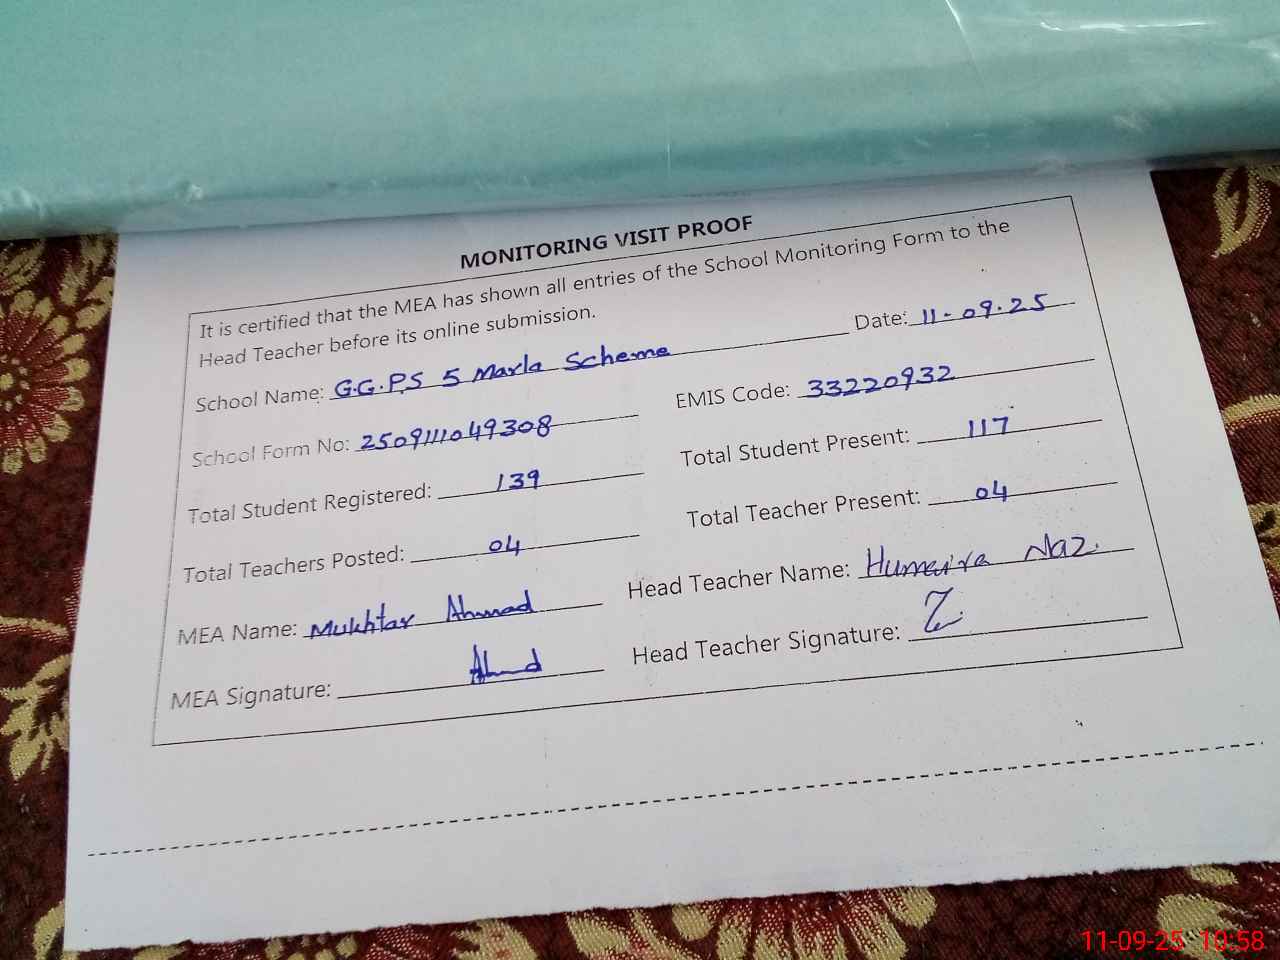 MONITORING VISIT PROOF
It is certified that the MEA has shown all entries of the School Monitoring Form to the
Head Teacher before its online submission.
Date: 11-09-25
School Name: G.G.P.S 5 Marla Scheme
EMIS Code: 33220932
School Form No: 2509111049308
Total Student Present: 117
Total Student Registered: 139
Total Teacher Present: 04
Total Teachers Posted: 04
Head Teacher Name: Humaira Naz.
MEA Name: Mukhtar Ahmad
Head Teacher Signature:
MEA Signature: Ahmd
11-09-25 10:58